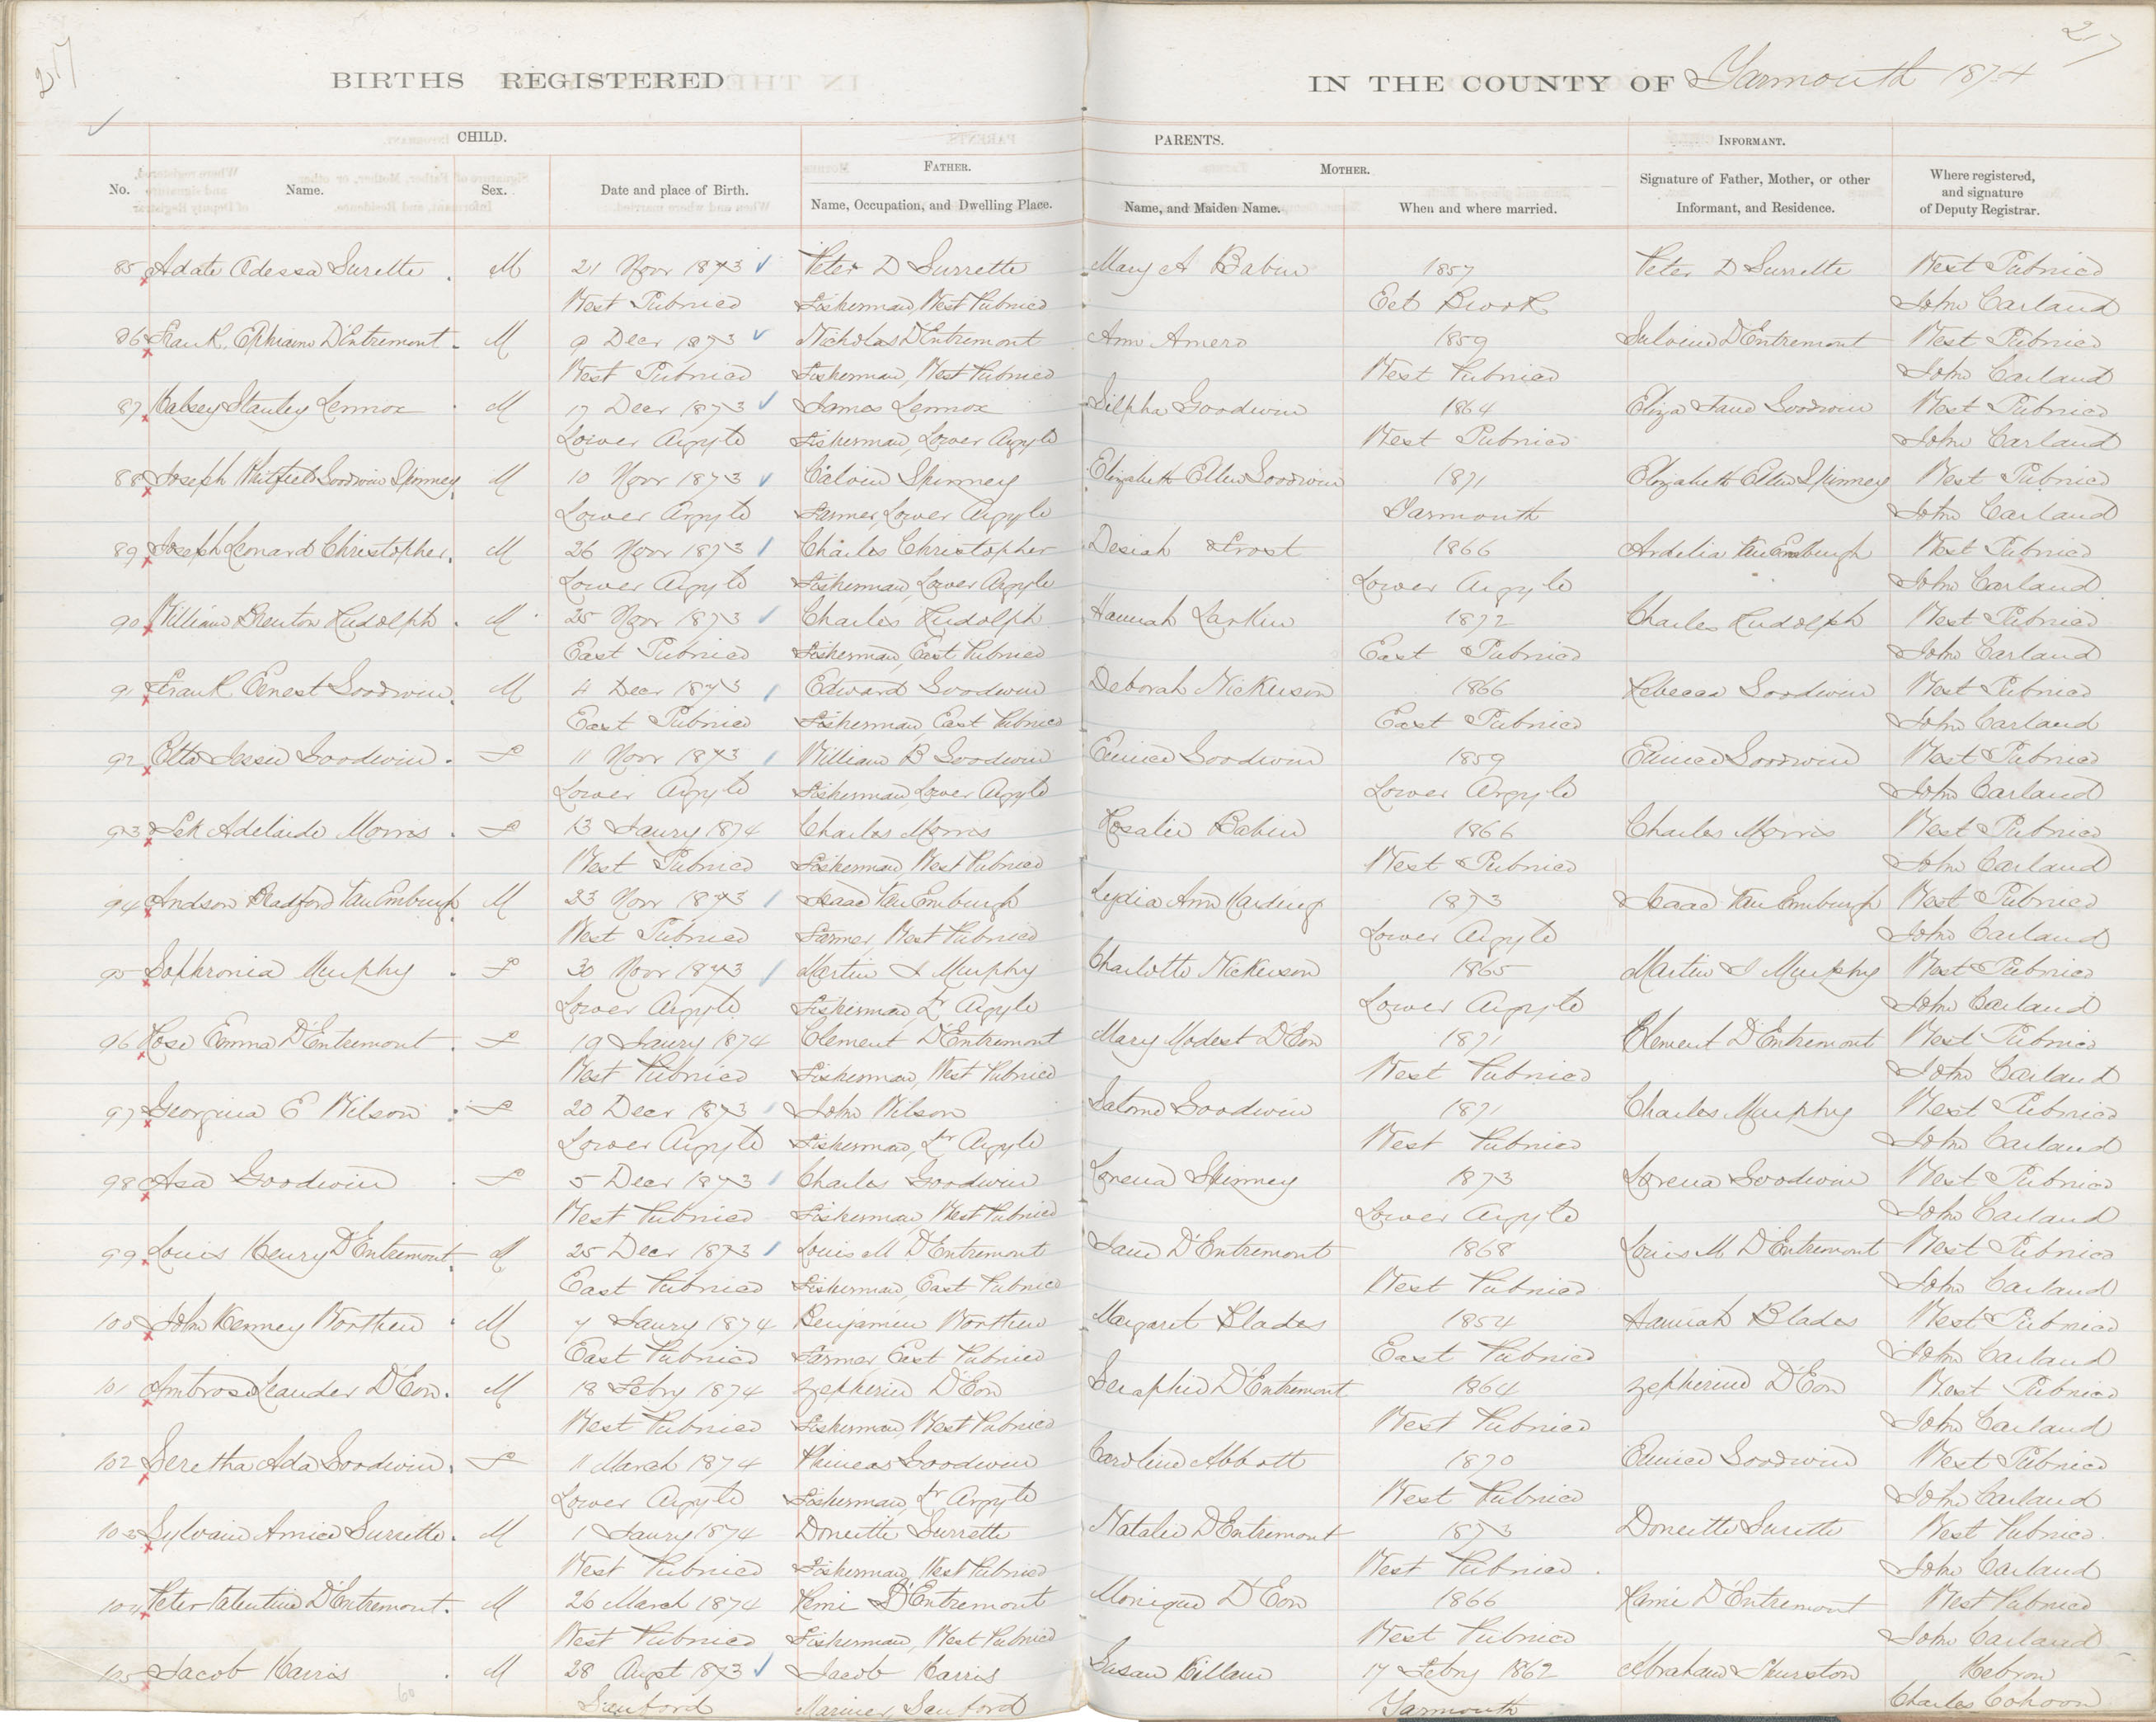 217
217
BIRTHS REGISTERED IN THE COUNTY OF Yarmouth 1874
CHILD. PARENTS. INFORMANT.
FATHER. MOTHER.
No. Name. Sex. Date and place of Birth. Name, Occupation, and Dwelling Place. Name, and Maiden Name. When and where married. Signature of Father, Mother, or other Informant, and Residence. Where registered, and signature of Deputy Registrar.
85 Adate Odessa Surette M 21 Novr 1873 Peter D Surrette Mary A Babin 1857 Peter D Surrette West Pubnico
West Pubnico Fisherman, West Pubnico Eel Brook John Carland
86 Frank Ephraim D'Entremont M 9 Decr 1873 Nicholas D'Entremont Ann Amero 1859 D'Entremont West Pubnico
West Pubnico Fisherman, West Pubnico West Pubnico John Carland
87 Halsey Stanley Lennox M 17 Decr 1873 James Lennox Zilpha Goodwin 1864 Eliza Jane Goodwin West Pubnico
Lower Argyle Fisherman, Lower Argyle West Pubnico John Carland
88 Joseph Whitfield Goodwin Spinney M 10 Novr 1873 Calvin Spinney Elizabeth Ellen Goodwin 1871 Elizabeth Ellen Spinney West Pubnico
Lower Argyle Farmer, Lower Argyle Yarmouth John Carland
89 Joseph Leonard Christopher M 26 Novr 1873 Charles Christopher Desiah Frost 1866 Ardelia Van Emburgh West Pubnico
Lower Argyle Fisherman, Lower Argyle Lower Argyle John Carland
90 William Brenton Rudolph M 25 Novr 1873 Charles Rudolph Hannah Larkin 1872 Charles Rudolph West Pubnico
East Pubnico Fisherman, East Pubnico East Pubnico John Carland
91 Frank Ernest Goodwin M 4 Decr 1873 Edward Goodwin Deborah Nickerson 1866 Rebecca Goodwin West Pubnico
East Pubnico Fisherman, East Pubnico East Pubnico John Carland
92 Etta Jessie Goodwin F 11 Novr 1873 William B Goodwin Eunice Goodwin 1859 Eunice Goodwin West Pubnico
Lower Argyle Fisherman, Lower Argyle Lower Argyle John Carland
93 Adelaide Morris F 13 Jaury 1874 Charles Morris Rosalie Babin 1866 Charles Morris West Pubnico
West Pubnico Fisherman, West Pubnico West Pubnico John Carland
94 Andson Bradford Van Emburgh M 23 Novr 1873 Isaac Van Emburgh Lydia Ann Harding 1873 Isaac Van Emburgh West Pubnico
West Pubnico Farmer, West Pubnico Lower Argyle John Carland
95 Sophronia Murphy F 30 Novr 1873 Martin J Murphy Charlotte Nickerson 1865 Martin J Murphy West Pubnico
Lower Argyle Fisherman, Lr Argyle Lower Argyle John Carland
96 Rose Emma D'Entremont F 19 Jaury 1874 Clement D'Entremont Mary Modest D'Eon 1871 Clement D'Entremont West Pubnico
West Pubnico Fisherman, West Pubnico West Pubnico John Carland
97 Georgina E Wilson F 20 Decr 1873 John Wilson Salome Goodwin 1871 Charles Murphy West Pubnico
Lower Argyle Fisherman, Lr Argyle West Pubnico John Carland
98 Asa Goodwin F 5 Decr 1873 Charles Goodwin Lorena Spinney 1873 Lorena Goodwin West Pubnico
West Pubnico Fisherman, West Pubnico Lower Argyle John Carland
99 Louis Henry D'Entremont M 25 Decr 1873 Louis M D'Entremont Jane D'Entremont 1868 Louis M D'Entremont West Pubnico
East Pubnico Fisherman, East Pubnico West Pubnico John Carland
100 John Kenney Worthen M 7 Jaury 1874 Benjamin Worthen Margaret Blades 1854 Hannah Blades West Pubnico
East Pubnico Farmer East Pubnico East Pubnico John Carland
101 Ambrose Leander D'Eon M 18 Febry 1874 Zepherin D'Eon Seraphie D'Entremont 1864 Zepherine D'Eon West Pubnico
West Pubnico Fisherman, West Pubnico West Pubnico John Carland
102 Seretha Ada Goodwin F 11 March 1874 Phineas Goodwin Caroline Abbott 1870 Eunice Goodwin West Pubnico
Lower Argyle Fisherman, Lr Argyle West Pubnico John Carland
103 Sylvain Amice Surrette M 1 Jaury 1874 Doneitte Surrette Natalie D'Entremont 1873 Doneitte Surette West Pubnico
West Pubnico Fisherman, West Pubnico West Pubnico John Carland
104 Peter Valentine D'Entremont M 26 March 1874 Remi D'Entremont Monique D'Eon 1866 Remi D'Entremont West Pubnico
West Pubnico Fisherman, West Pubnico West Pubnico John Carland
105 Jacob Harris M 28 Augst 1873 Jacob Harris Susan Killam 17 Febry 1862 Abraham Thurston Hebron
60 Sanford Mariner, Sanford Yarmouth Charles Cohoon